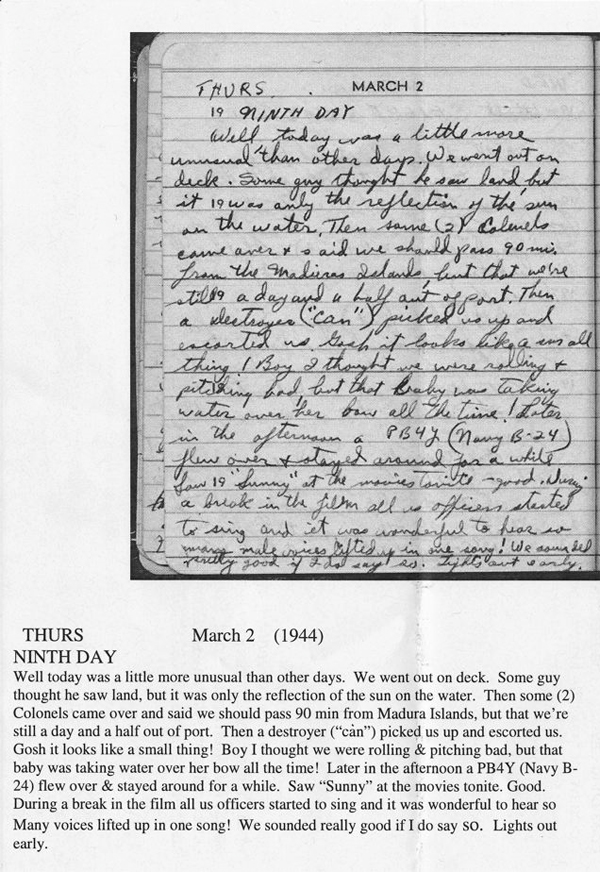 THURS. . MARCH 2
19 NINTH DAY
Well today was a little more
unusual than other days. We went out on
deck. Some guy thought he saw land, but
it 19 was only the reflection of the sun
on the water. Then some (2) Colonels
came over + said we should pass 90 mi.
from the Madieras Islands, but that we're
still 19 a day and a half out of port. Then
a destroyer ("can") picked us up and
escorted us. Gosh it looks like a small
thing! Boy I thought we were rolling +
pitching bad, but that baby was taking
water over her bow all the time! Later
in the afternoon a PB4Y (Navy B-24)
flew over + stayed around for a while
Saw 19 "Sunny" at the movies tonite - good. During
a break in the film all us officers started
to sing and it was wonderful to hear so
many male voices lifted up in one song! We sounded
really good if I do say so. Lights out early.
THURS March 2 (1944)
NINTH DAY
Well today was a little more unusual than other days. We went out on deck. Some guy
thought he saw land, but it was only the reflection of the sun on the water. Then some (2)
Colonels came over and said we should pass 90 min from Madura Islands, but that we're
still a day and a half out of port. Then a destroyer ("càn") picked us up and escorted us.
Gosh it looks like a small thing! Boy I thought we were rolling & pitching bad, but that
baby was taking water over her bow all the time! Later in the afternoon a PB4Y (Navy B-
24) flew over & stayed around for a while. Saw "Sunny" at the movies tonite. Good.
During a break in the film all us officers started to sing and it was wonderful to hear so
Many voices lifted up in one song! We sounded really good if I do say so. Lights out
early.